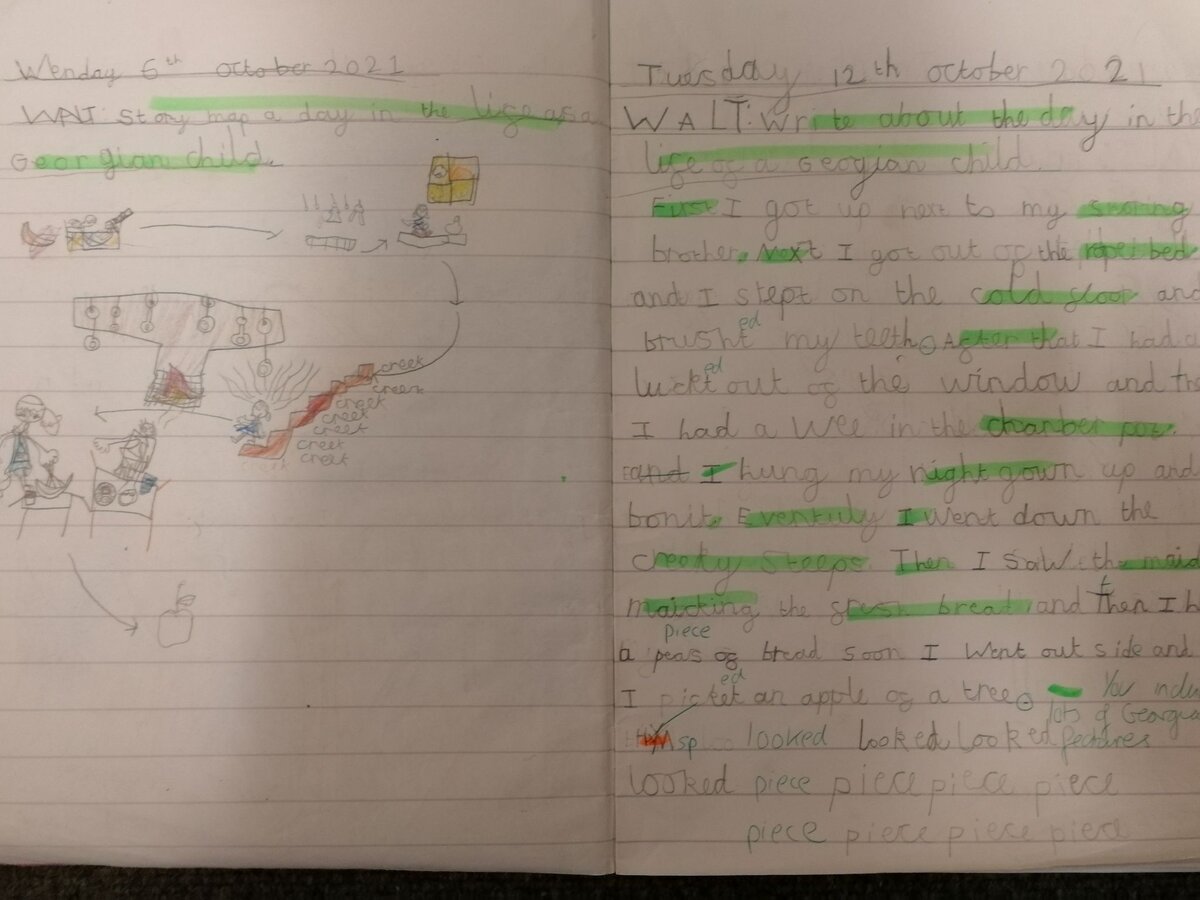 Wenday 6th october 2021
WALT: Story map a day in the life as a
Georgian child.
creek
creek
creek
creek
creek
creek
creek
creek
Tuesday 12th october 2021
WALT: Write about the day in the
life of a Geogian child.
First I got up next to my snoring
brother. Next I got out of the rope bed
and I stept on the cold floor and
ed
brusht my teeth. After that I had a
ed
luckt out of the window and the
I had a wee in the chamber pot.
and I hung my night gown up and
bonit. Eventuly I went down the
creeky steeps. Then I saw the maid
maicking the fresh bread and then I h
piece
a peas of bread soon I went out side and
ed
I picket an apple of a tree. You inclu
lots of Georgia
sp looked looked looked features
looked piece piece piece piece
piece piece piece piece